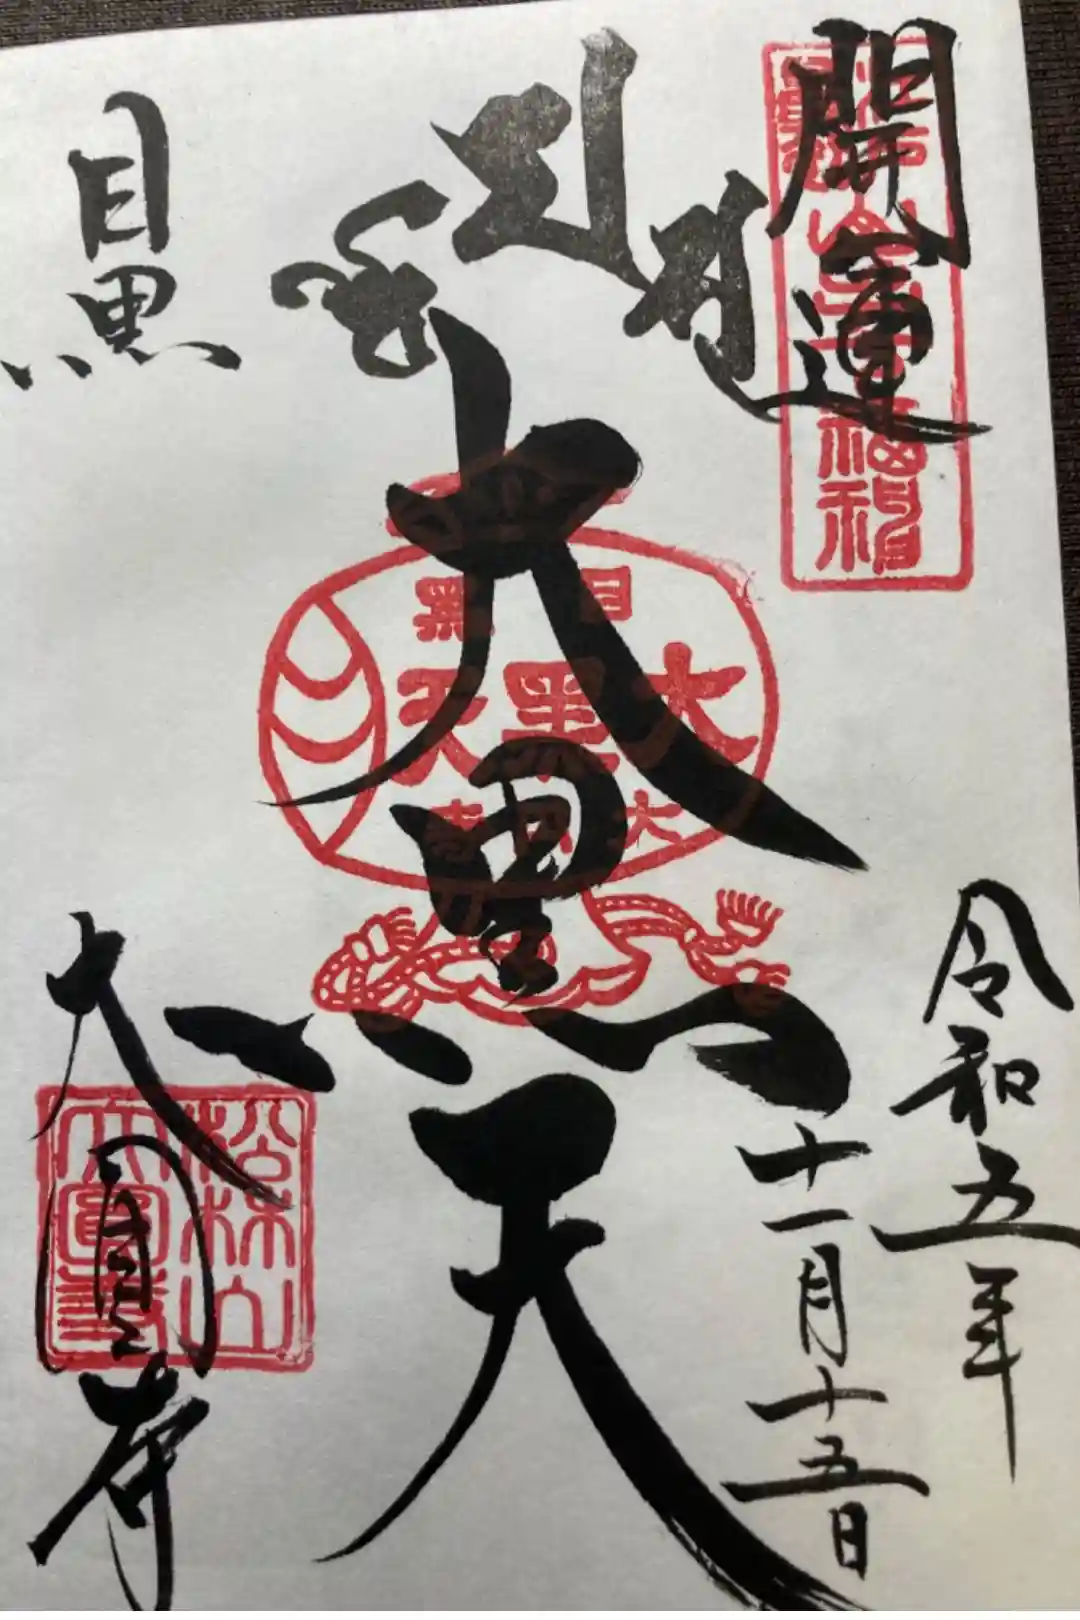 開運
令和五年
十一月十五日
大黒天
目黒
大圓寺
目黒
大黒天
松林山
大圓寺